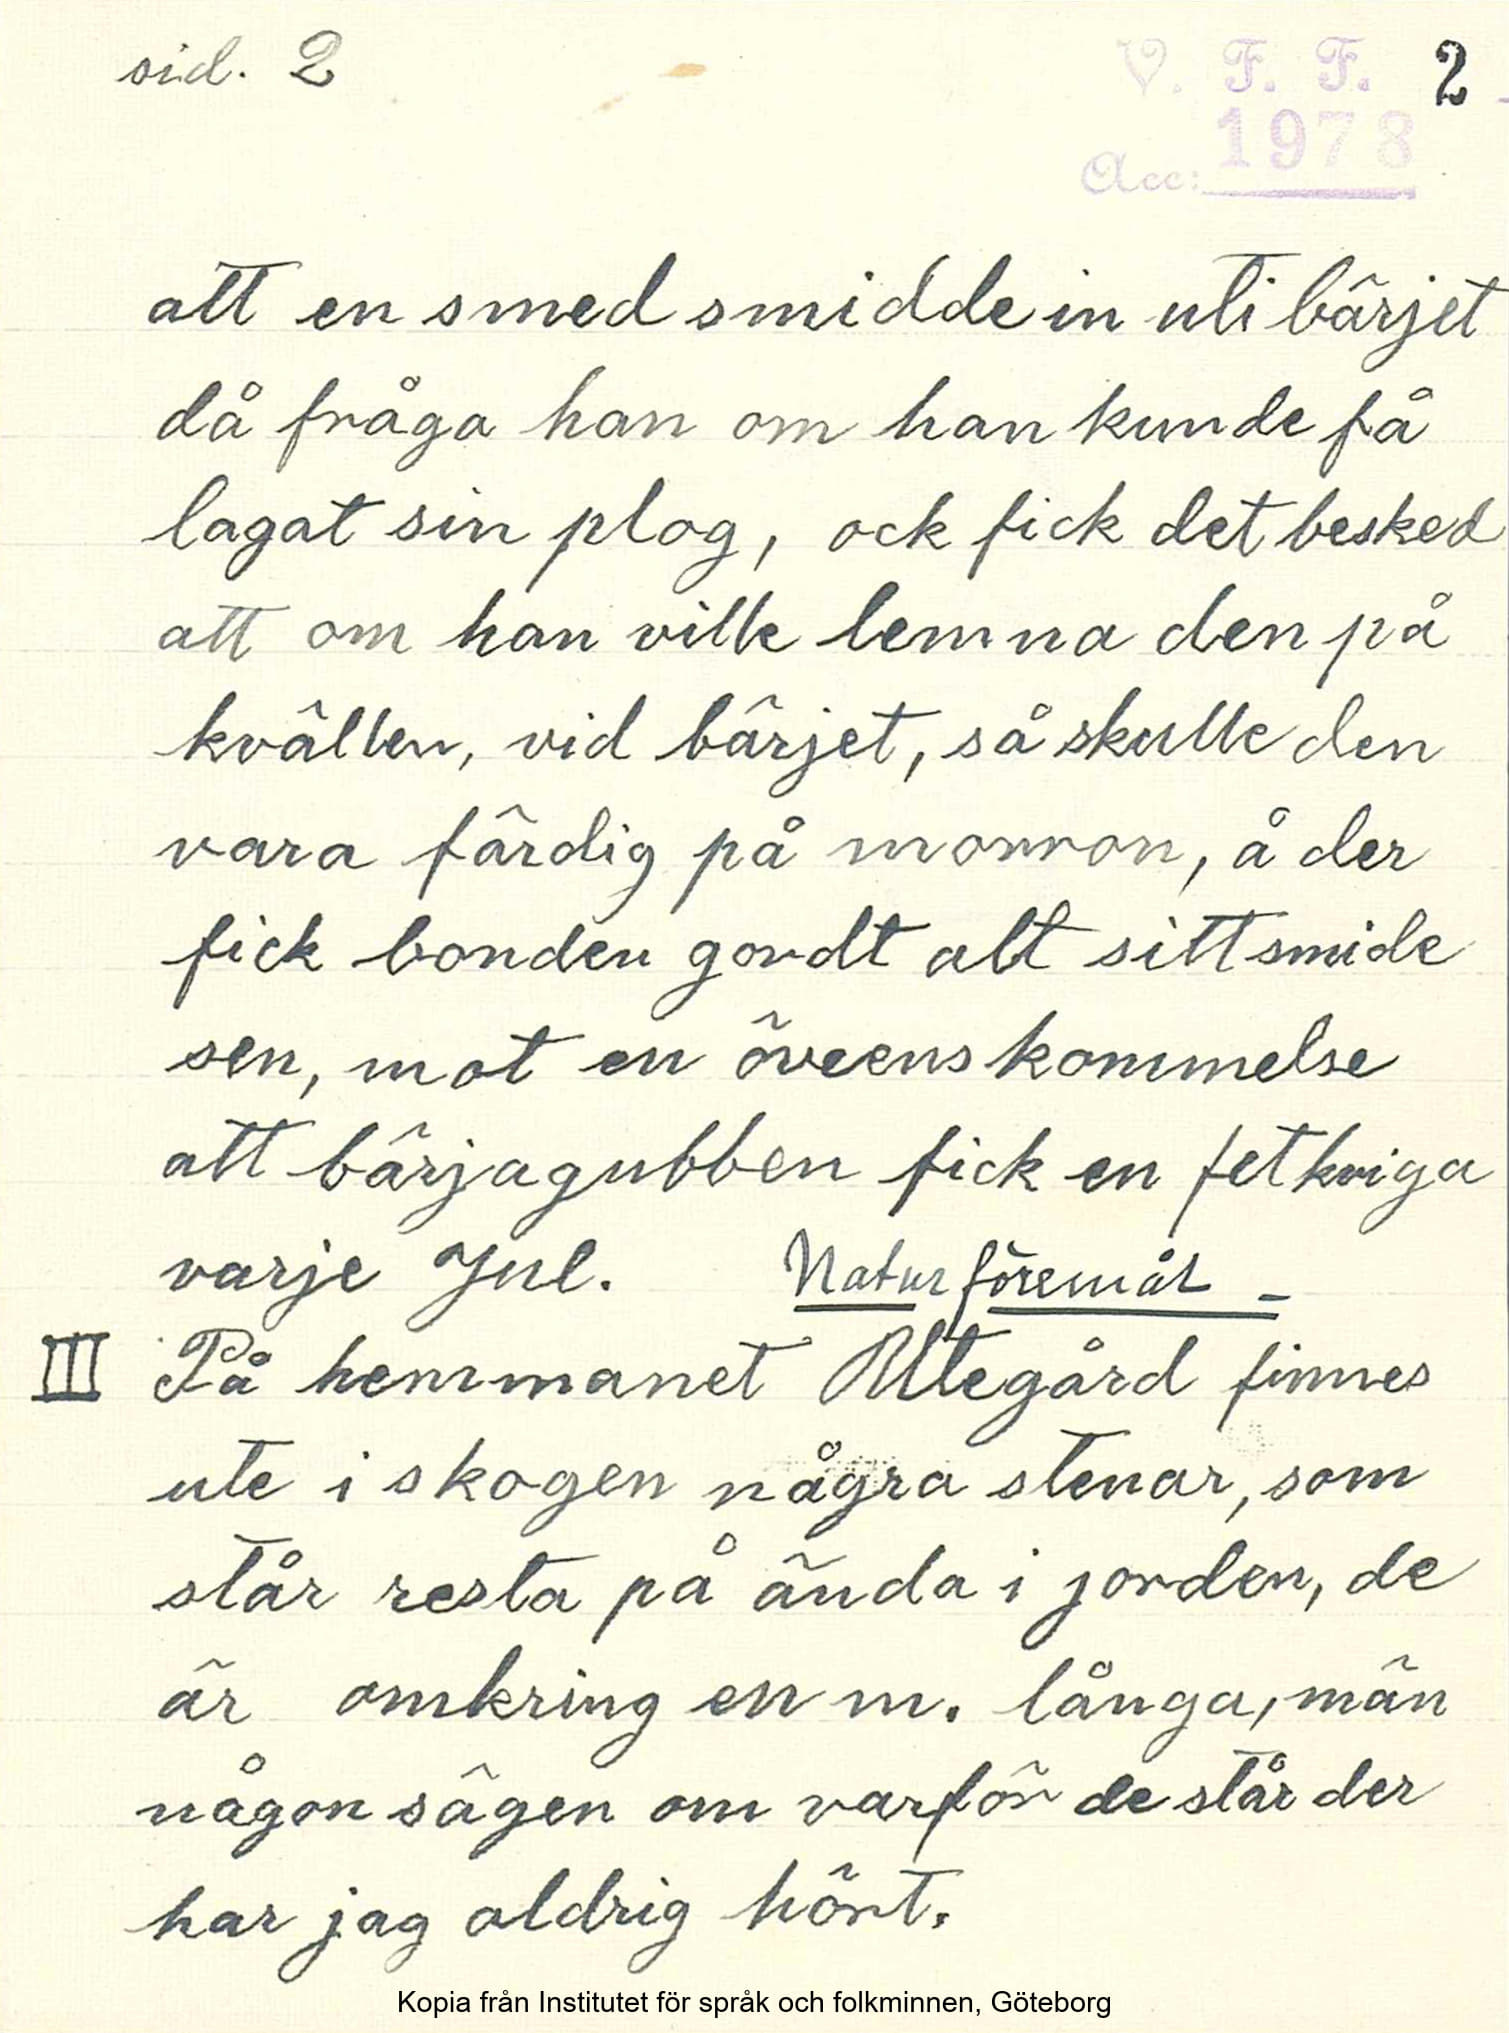 sid. 2
V. F. F. 2
Acc: 1978
att en smed smidde in uti bärjet
då fråga han om han kunde få
lagat sin plog, ock fick det besked
att om han ville lemna den på
kvällen, vid bärjet, så skulle den
vara färdig på morron, å der
fick bonden gordt alt sitt smide
sen, mot en öveenskommelse
att bärjagubben fick en fet kviga
varje Jul. Naturföremål –
III På hemmanet Utegård finnes
ute i skogen några stenar, som
står resta på ända i jorden, de
är omkring en m. långa, män
någon sägen om varför de står der
har jag aldrig hört.
Kopia från Institutet för språk och folkminnen, Göteborg